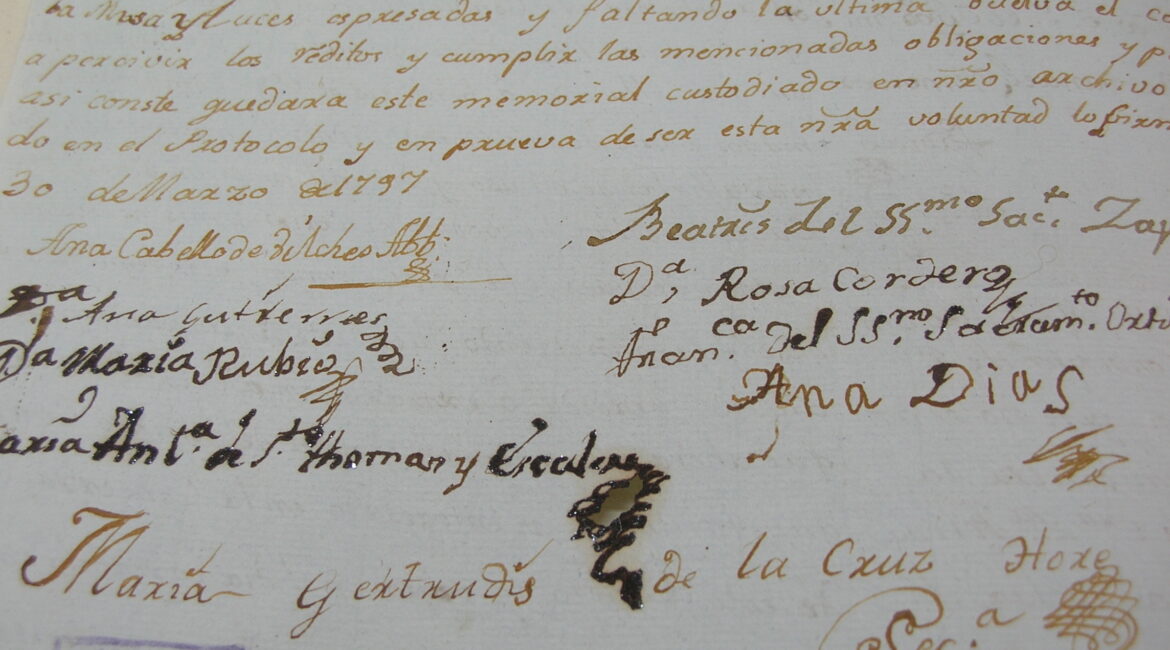 la Misa y luces espresadas y faltando la ultima buelva el
a percivir los réditos y cumplir las mencionadas obligaciones y p
asi conste quedara este memorial custodiado en nr̃o archivo
do en el Protocolo y en prueva de ser esta nr̃a voluntad lo firm
30 de Marzo de 1797
Ana Cabello de Vilches Abb.
Beatris del SS.mo Sac.to Zap
Dª Rosa Cordero
Dª Ana Gutierrez
Fran.ca del SS.mo Sacram.to Orti
Dª Maria Rubio
Ana Dias
aria Ant.ª de S.to Thomas y Escalera
Maria Gertrudis de la Cruz Hore
Sec.ª